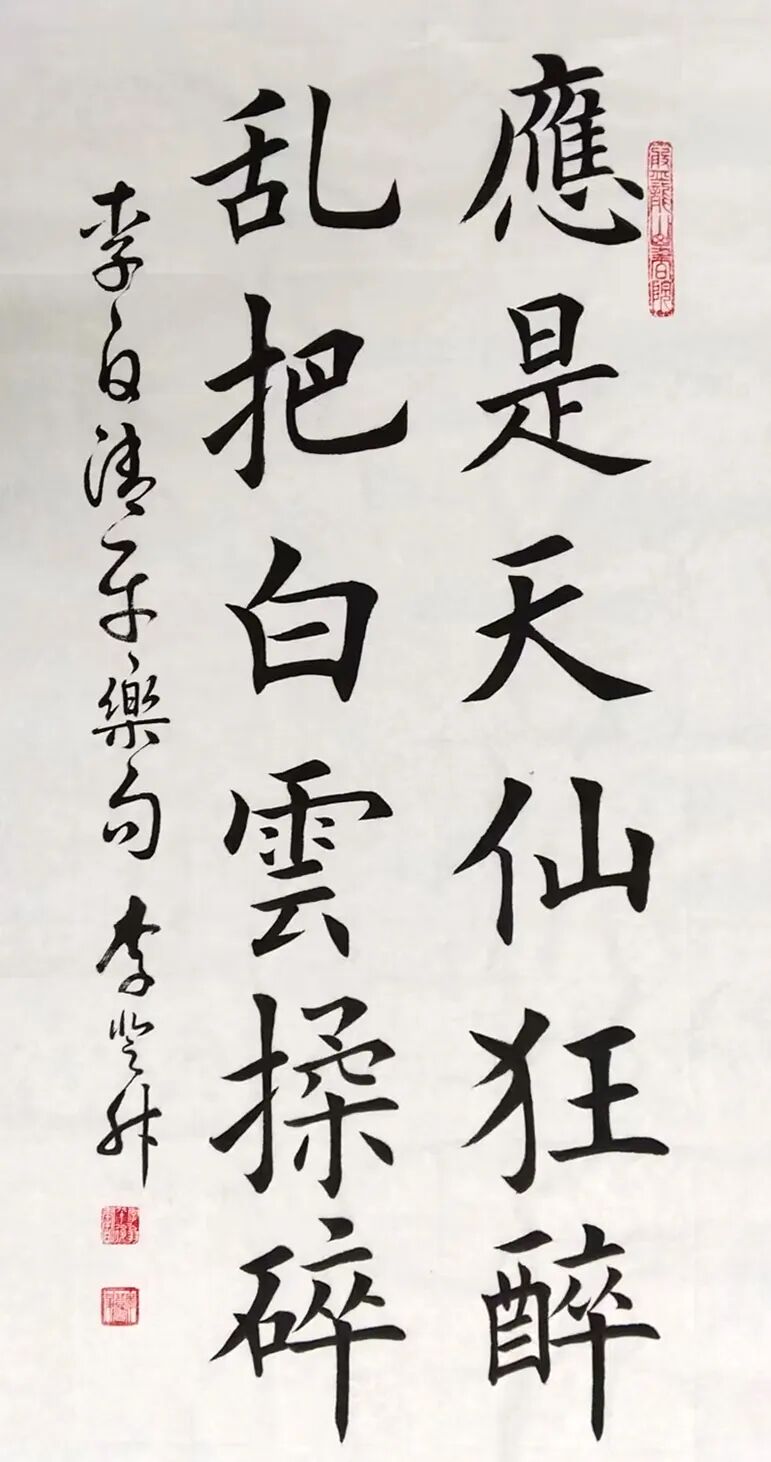 應是天仙狂醉
乱把白雲揉碎
李白清平樂句 李登升